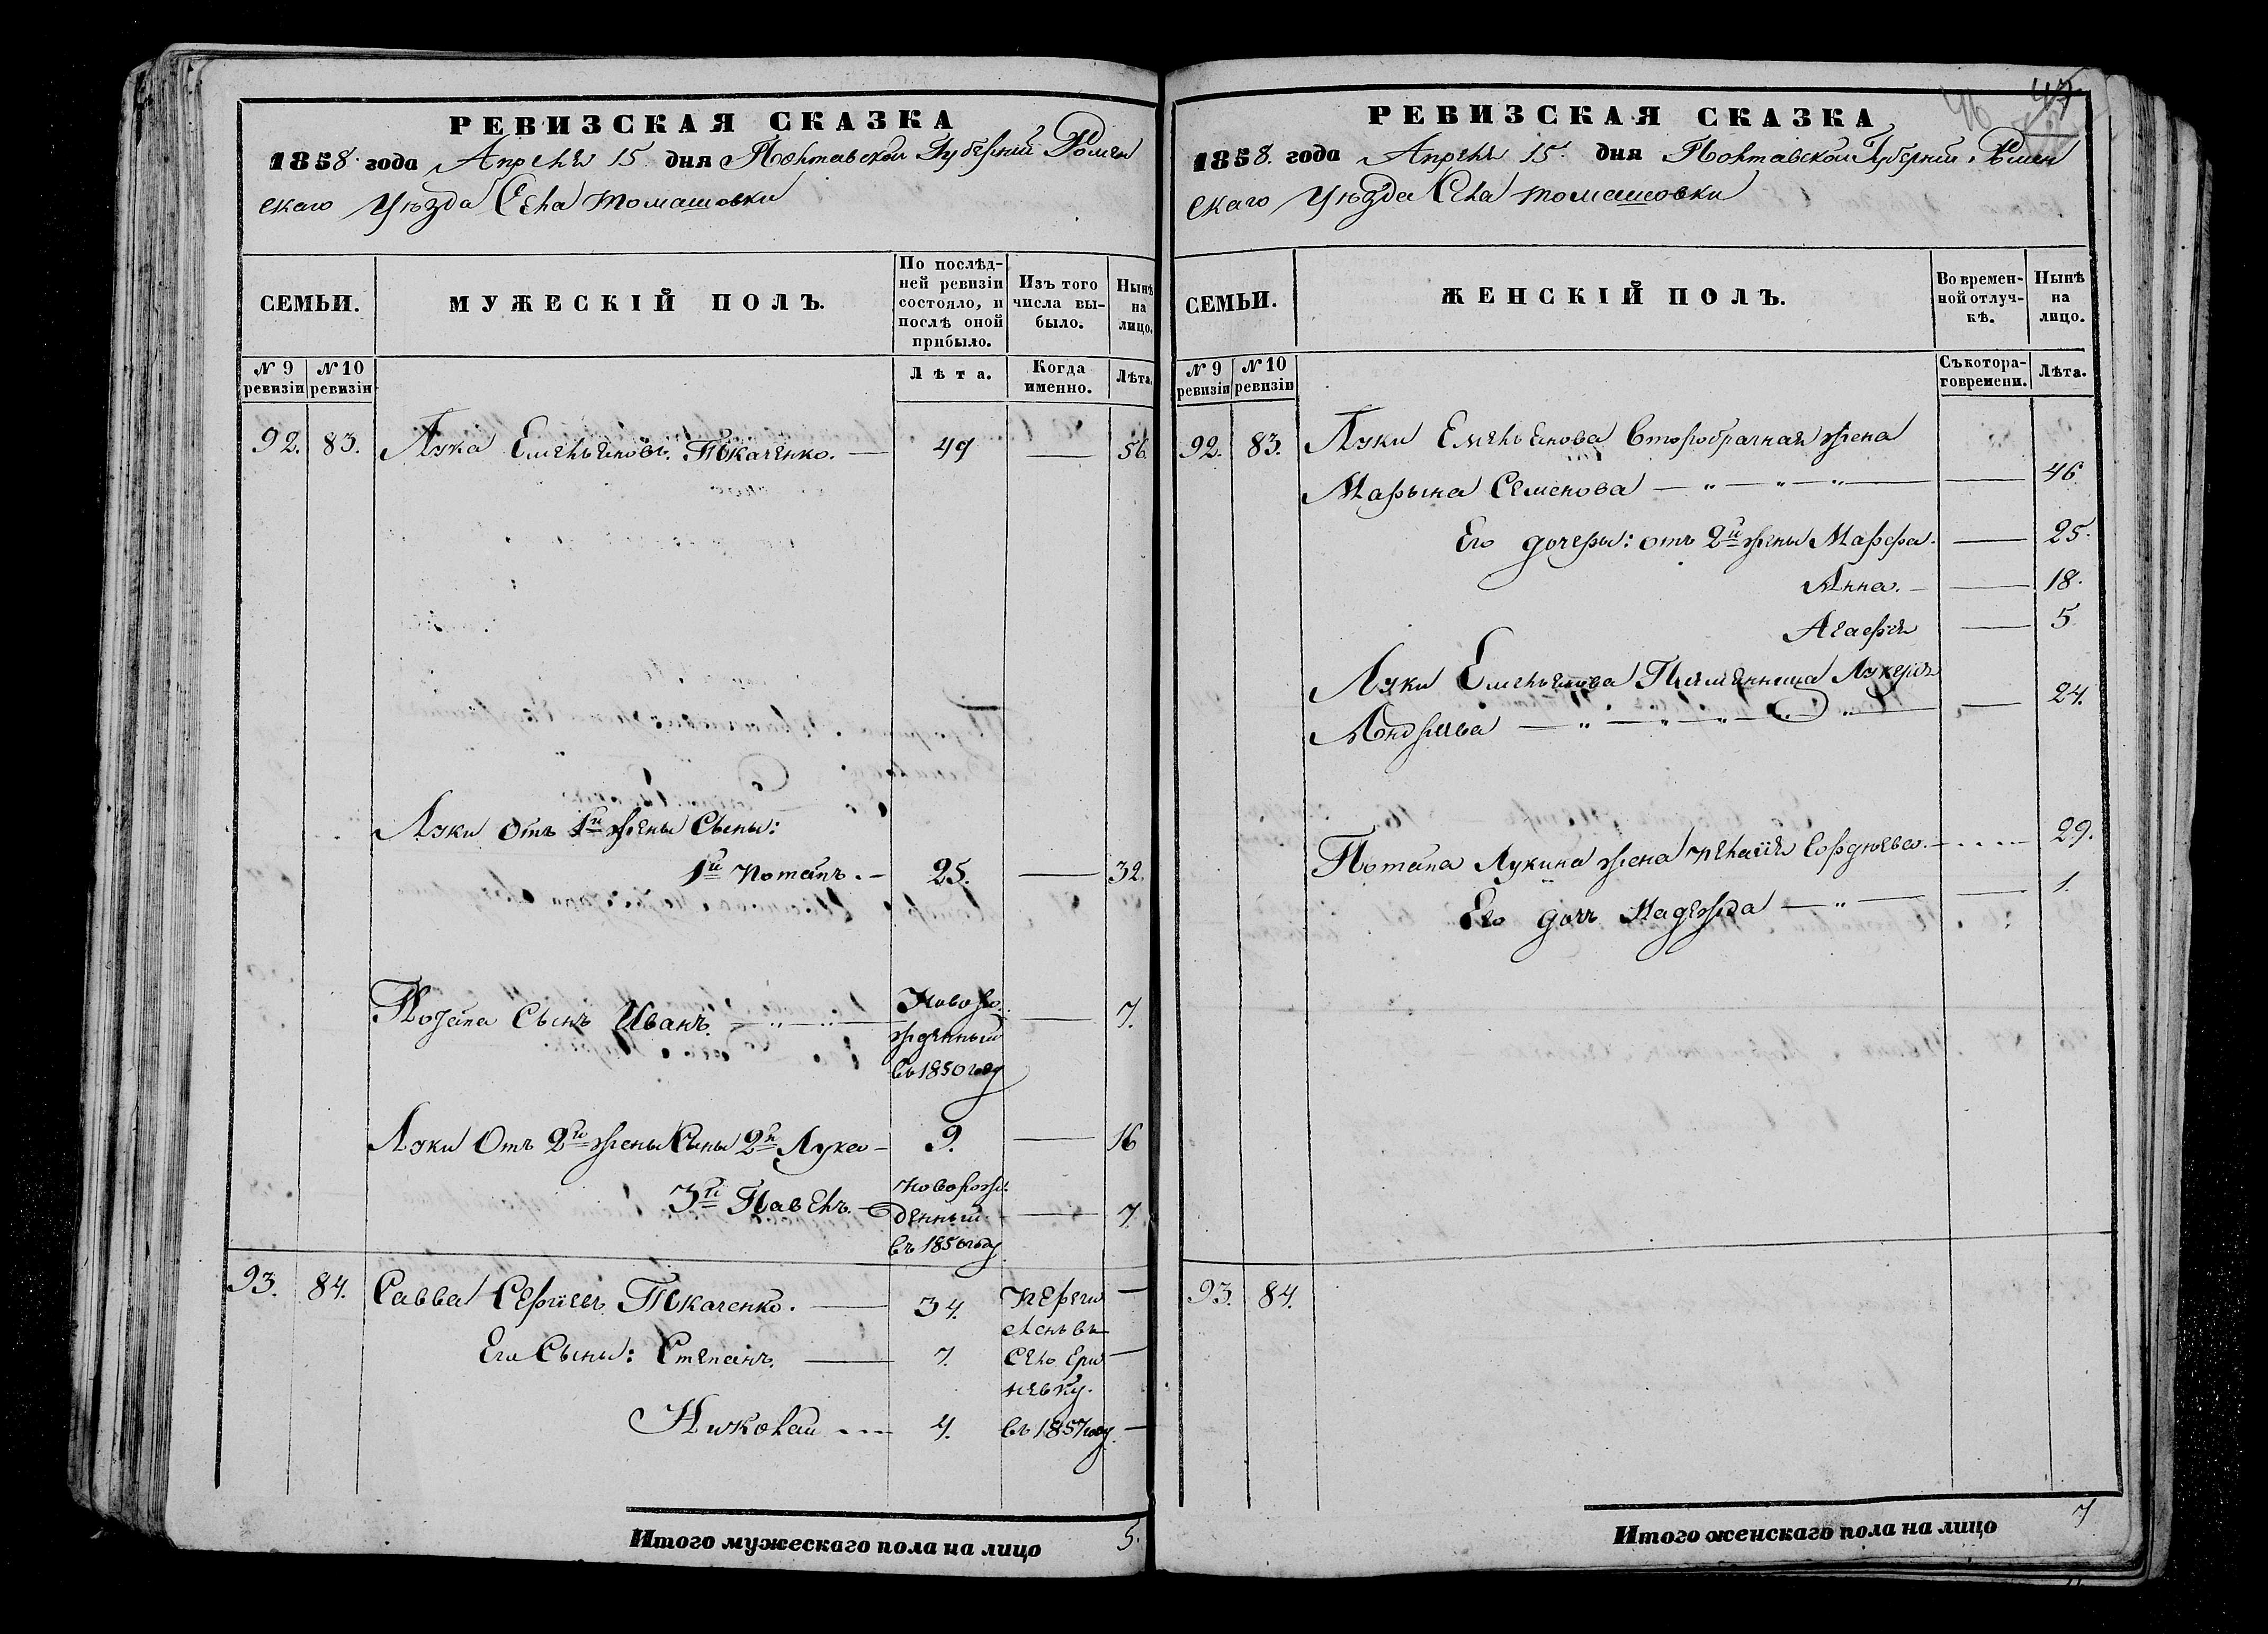 РЕВИЗСКАЯ СКАЗКА
1858 года Апреля 15 дня Полтавской Губерніи Ромен
скаго Уѣзда Села Томашовки
СЕМЬИ.
МУЖЕСКІЙ ПОЛЪ.
По послѣд-
ней ревизіи
состояло, и
послѣ оной
прибыло.
Изъ того
числа вы-
было.
Нынѣ
на
лицо.
№ 9
ревизіи
№ 10
ревизіи
Лѣта.
Когда
именно.
Лѣта.
92. 83. Лука Емельяновъ Ткаченко. — 49 — 56.
Луки отъ 1й жены Сыны:
1й Потапъ. — 25. — 32.
Потапа Сынъ Иванъ. Новоро-
жденный
въ 1850 году — 7.
Луки Отъ 2й жены Сыны 2й Лука — 9. — 16
3й Павелъ. — новорож-
денный
въ 1850 году — 7.
93. 84. Савва Сергіевъ Ткаченко. — 34. Перечи
сленъ въ —
Его Сыны: Степанъ. — 7. Село
въ 1857 году —
Николай — 4.
РЕВИЗСКАЯ СКАЗКА
1858. года Апреля 15. дня Полтавской Губерніи Ромен
скаго Уѣзда Села Томашовки
46 47
СЕМЬИ.
ЖЕНСКІЙ ПОЛЪ.
Во времен-
ной отлуч-
кѣ.
Нынѣ
на
лицо.
№ 9
ревизіи
№ 10
ревизіи
Съ котора-
го времени.
Лѣта.
92. 83. Луки Емельянова Второбрачная жена
Марьина Семенова — 46
Его дочеры: отъ 2й жены Марфа. — 25.
Анна. — 18.
Агафія — 5
Луки Емельянова Племянница Лукерія
Андреева — 24.
Потапа Лукина жена Пелагія — 29.
Его дочь Надежда — 1.
93. 84.
Итого мужескаго пола на лицо 5.
Итого женскаго пола на лицо 7